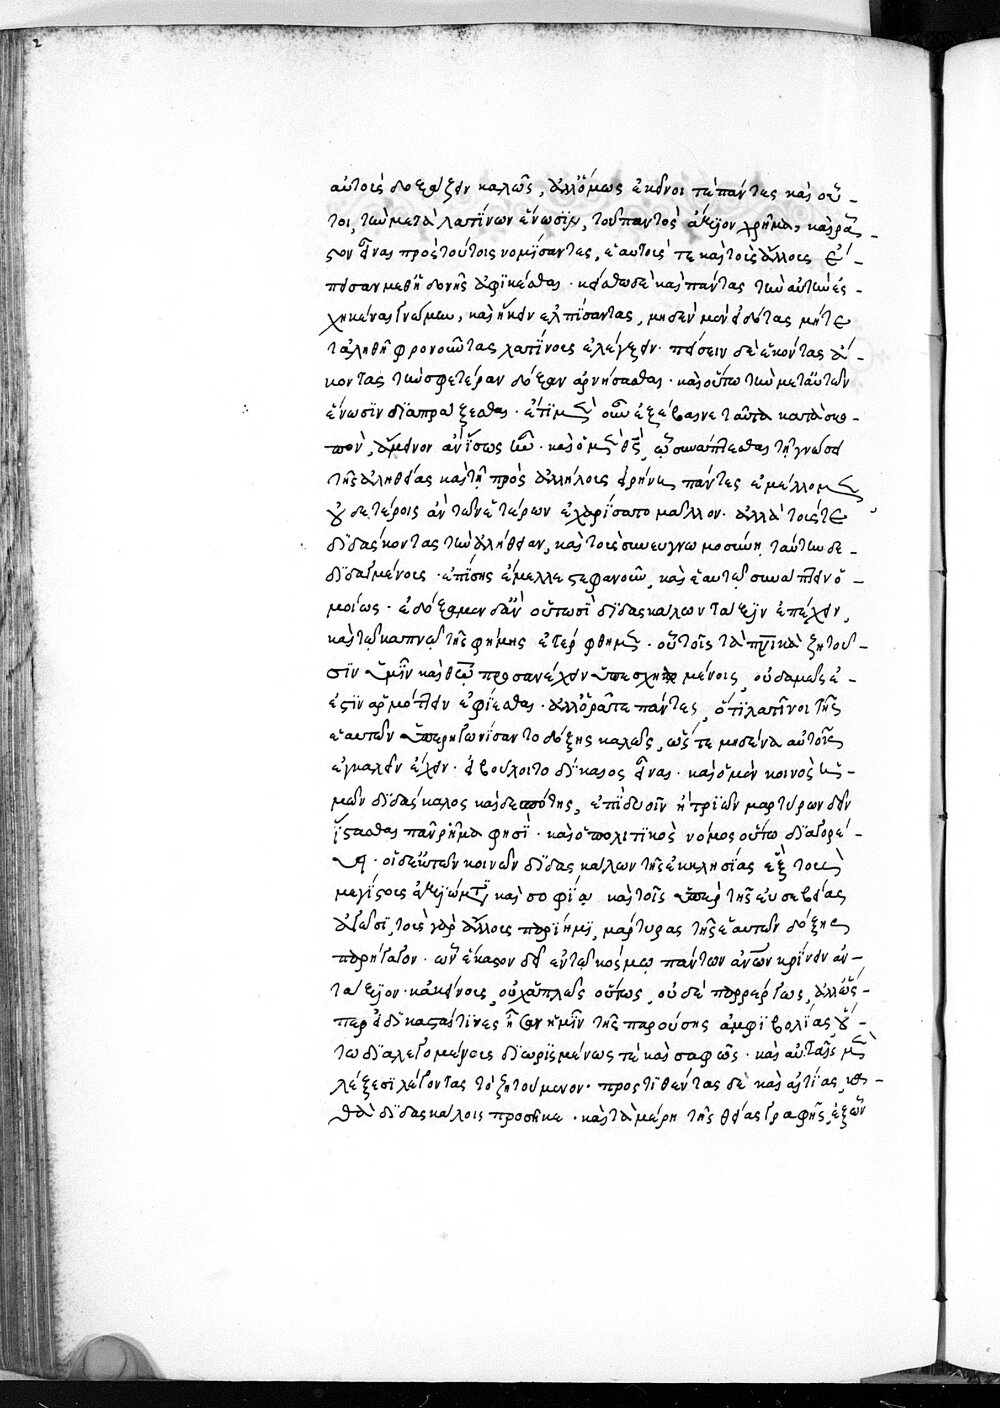 2
αὐτοῖς δοξάζειν καλῶς, ἀλλ' ὅμως ἐκεῖνοι τὲ πάντες καὶ οὗ-
τοι, τὴν μετὰ λατίνων ἕνωσιν, τοῦ παντὸς ἄξιον χρῆμα, καὶ ρᾷ-
στον εἶναι πρὸς τούτοις νομίσαντες, ἑαυτοῖς τε καὶ τοῖς ἄλλοις
πᾶσαν μεθ' ἡδονῆς ἀφικέσθαι. καὶ πάντας τὴν αὐτὴν ἐσ-
χηκέναι γνώμην, καὶ ἥκειν ἐλπίσαντας, μηδὲν μὲν εἰδότας μήτε
τἀληθῆ φρονοῦντας λατίνους ἐλέγξειν. πείσειν δὲ ἑκόντας ἄ-
κοντας τὴν σφετέραν δόξαν ἀρνήσασθαι. καὶ οὕτω τὴν μετ' αὐτῶν
ἕνωσιν διαπράξεσθαι. ἐπεὶ μὲν οὖν ἐξέβαινε ταῦτα κατὰ σκο-
πὸν, ἄμεινον ἂν ἴσως ἦν. καὶ ὁ μὲν θεὸς, ᾧ συνάπτεσθαι τῇ γνώσει
τῆς ἀληθείας καὶ τῇ πρὸς ἀλλήλους εἰρήνῃ πάντες ἐμέλλομεν,
οὐδετέροις ἂν τῶν ἑτέρων ἐχαρίσατο μᾶλλον. ἀλλὰ τούς τε
διδάσκοντας τὴν ἀλήθειαν, καὶ τοὺς σὺν εὐγνωμοσύνῃ ταύτην δε-
διδαγμένους. ἐπίσης ἔμελλε στεφανοῦν, καὶ ἑαυτῷ συνάπτειν ὁ-
μοίως. ἐδόξαμεν δ' ἂν οὑτωσὶ διδασκάλων τάξιν ἐπέχειν,
καὶ τῷ καπνῷ τῆς φήμης. οὗτοι τὰ ζητοῦ-
σιν ὑμῖν καὶ θεῷ προσανέχειν ὑπεσχημένοις, οὐδαμῶς ἐ-
στιν ἁρμόττειν ἐφίεσθαι. ἀλλ' ὁρᾶτε πάντες, ὅτι λατῖνοι τῆς
ἑαυτῶν ὑπερηγωνίσαντο δόξης καλῶς, ὥστε μηδένα αὐτοῖς
ἐγκαλεῖν ἔχειν. εἰ βούλοιτο δίκαιος εἶναι. καὶ ὁ μὲν κοινὸς ἡ-
μῶν διδάσκαλος καὶ δεσπότης, ἐπὶ δυοῖν ἢ τριῶν μαρτύρων δεῖν
ἵστασθαι πᾶν ῥῆμα φησί. καὶ ὁ πολιτικὸς νόμος οὕτω διαγορεύ-
ει. οἱ δὲ τῶν κοινῶν διδασκάλων τῆς ἐκκλησίας ἓξ τοὺς
μεγίστους ἀξιώματι καὶ σοφίᾳ καὶ τοῖς ὑπὲρ τῆς εὐσεβείας
ἀγῶσι, τοὺς γὰρ ἄλλους παρίημι, μάρτυρας τῆς ἑαυτῶν δόξης
παρήγαγον. ὧν ἕκαστον δεῖ ἐν τῷ κόσμῳ πάντων ἀνθρώπων κρίνειν ἀν-
τάξιον. κἀκείνους, οὐχ ἁπλῶς οὕτως, οὐδὲ παρέργως, ἀλλ' ὥσ-
περ εἰ δικασταί τινες ἦσαν ἡμῖν τῆς παρούσης ἀμφιβολίας οὕ-
τω διαλεγομένους διωρισμένως τὲ καὶ σαφῶς. καὶ αὐταῖς μὲν
λέξεσι λέγοντας τὸ ζητούμενον. προστιθέντας δὲ καὶ αἰτίας, κα-
θὰ διδασκάλοις προσῆκε. καὶ τὰ μέρη τῆς θείας γραφῆς, ἐξ ὧν